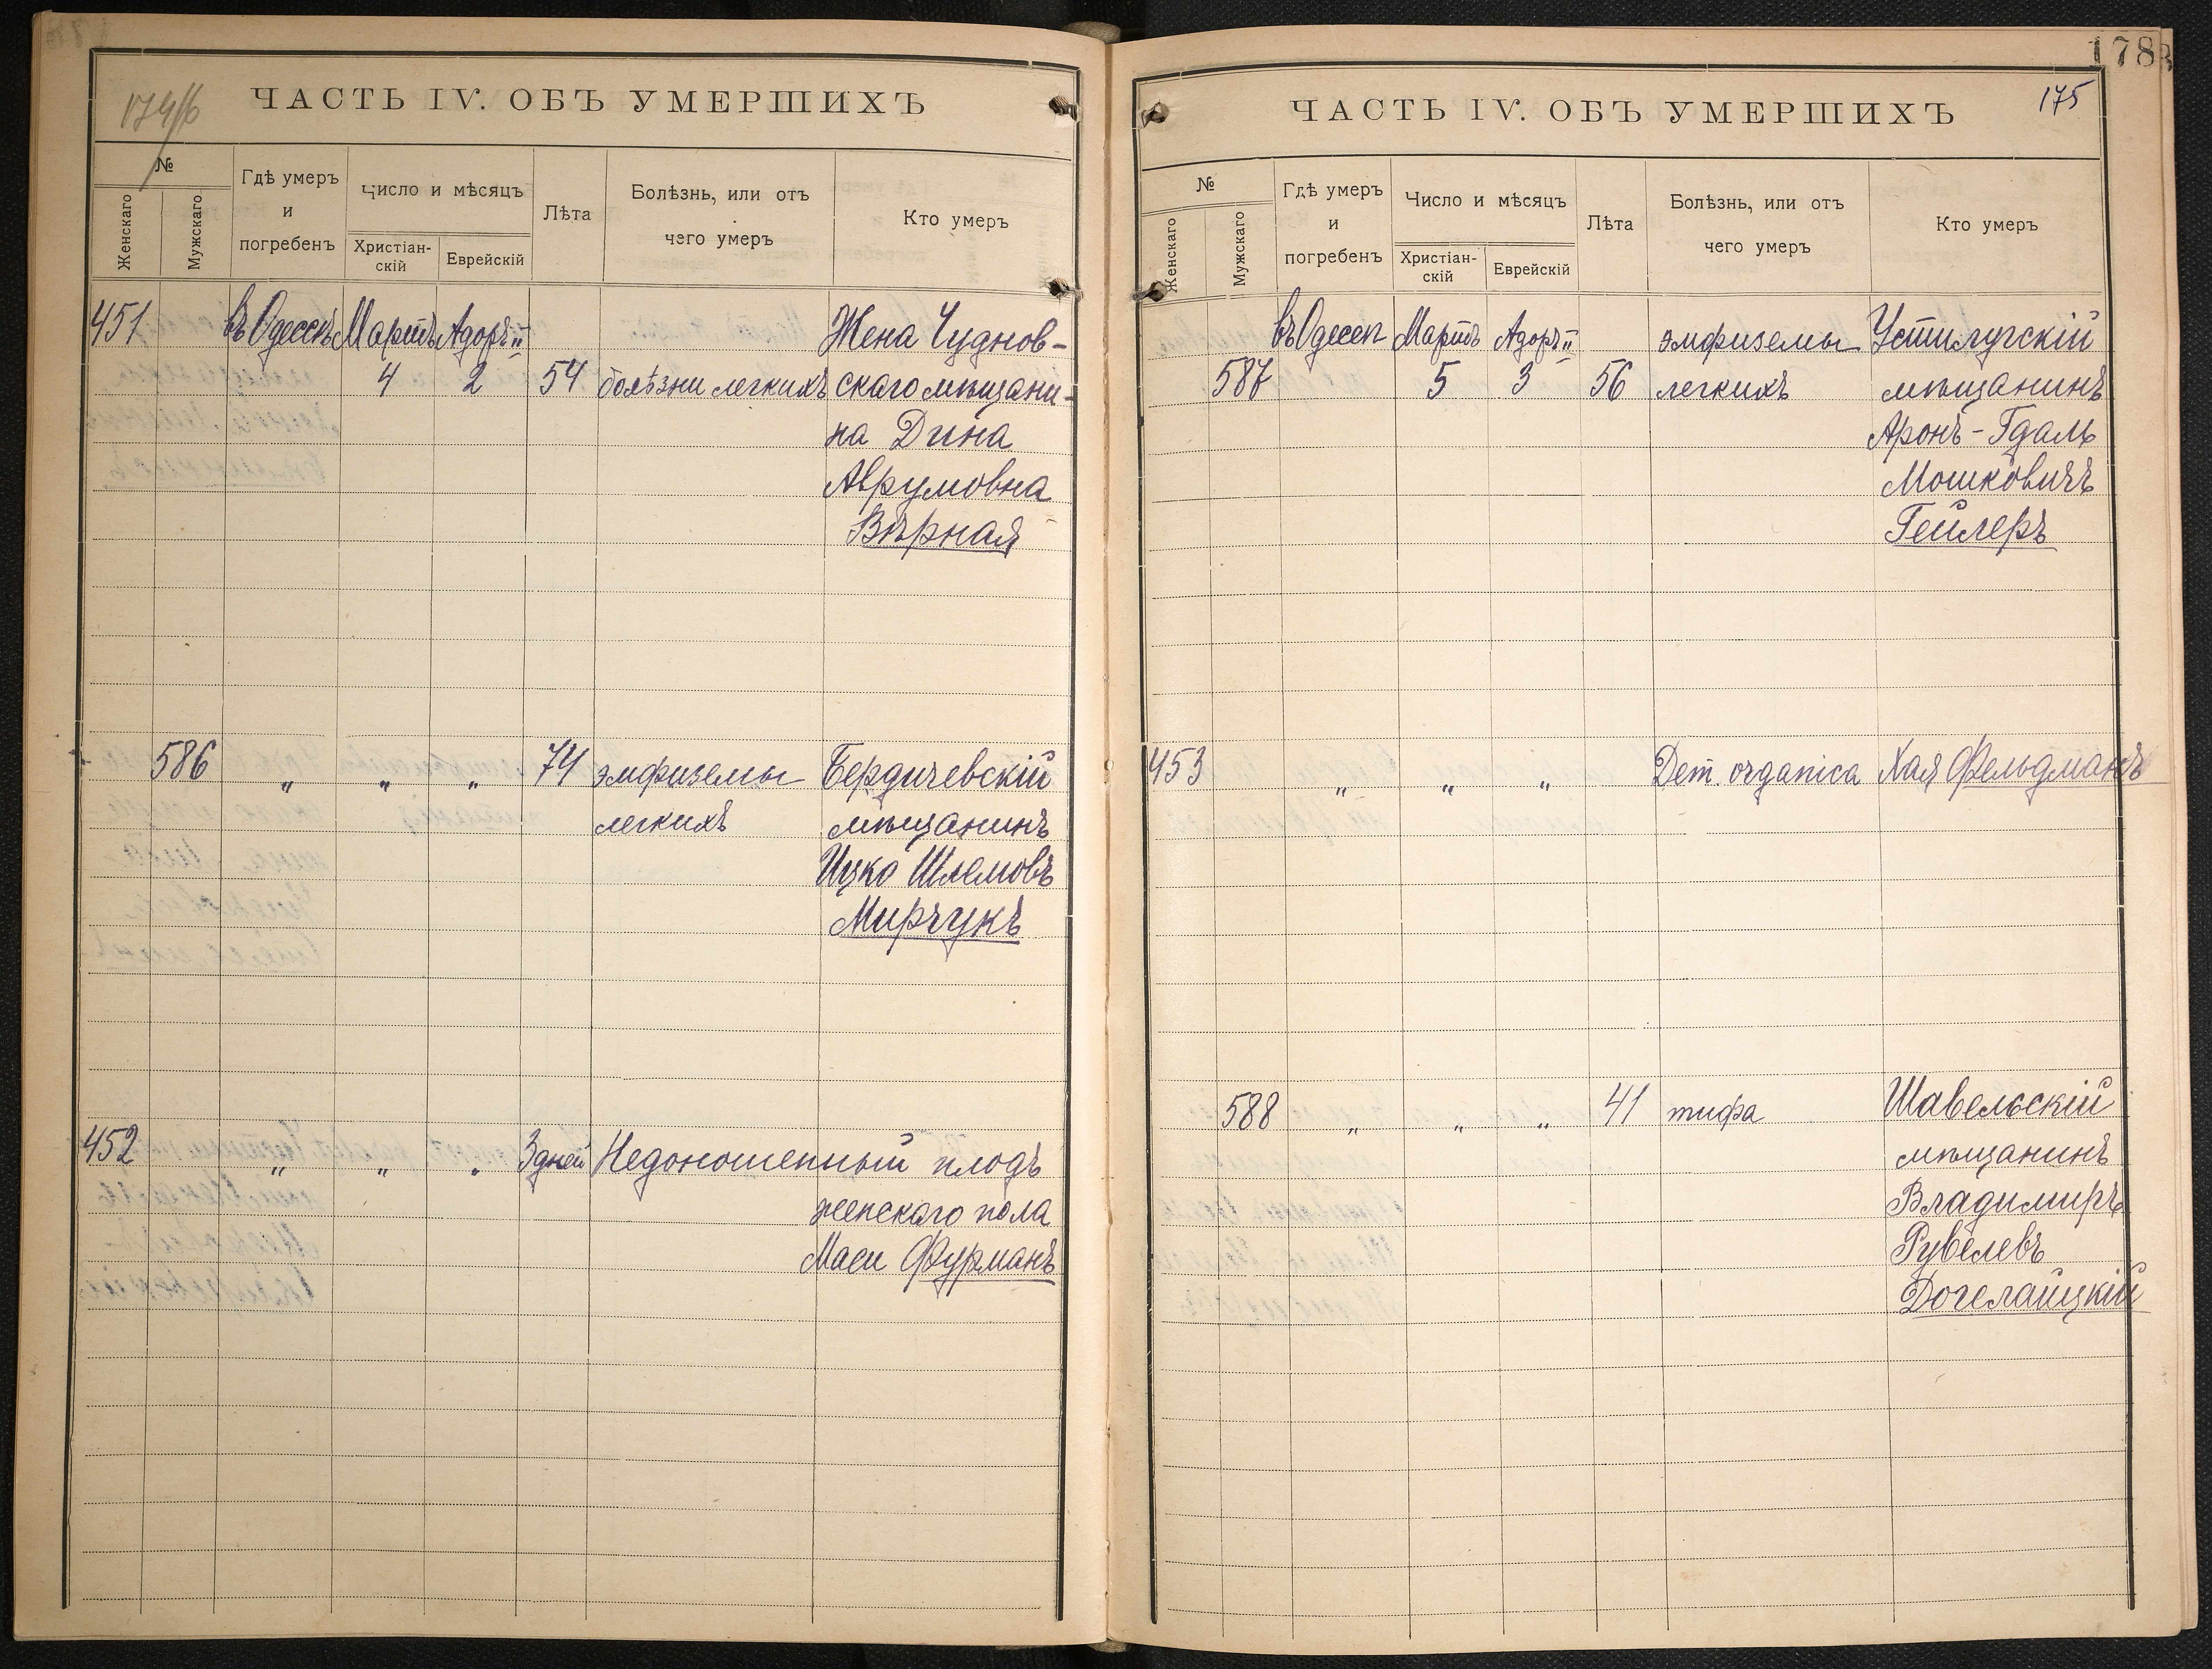 174/б
ЧАСТЬ IV. ОБЪ УМЕРШИХЪ
№
Женскаго
Мужскаго
Гдѣ умеръ
и
погребенъ
Число и мѣсяцъ
Христіан-
скій
Еврейскій
Лѣта
Болѣзнь, или отъ
чего умеръ
Кто умеръ
451 въ Одессѣ Мартъ Адоръ II Жена Чуднов-
4 2 54 болѣзни легкихъ скаго мѣщани-
на Дина
Аврумовна
Вѣрная
586 " " " 74 эмфиземы Бердичевскій
легкихъ мѣщанинъ
Ицко Шлемовъ
Мирчукъ
452 " " " 3 дней Недоношенный плодъ
женскаго пола
Маси Фурманъ
178
175
ЧАСТЬ IV. ОБЪ УМЕРШИХЪ
№
Женскаго
Мужскаго
Гдѣ умеръ
и
погребенъ
Число и мѣсяцъ
Христіан-
скій
Еврейскій
Лѣта
Болѣзнь, или отъ
чего умеръ
Кто умеръ
въ Одессѣ Мартъ Адоръ II эмфиземы Устилугскій
587 5 3 56 легкихъ мѣщанинъ
Аронъ-Гдаль
Мошковичъ
Гейлеръ
453 " " " Dem. organica Хая Фельдманъ
588 " " " 41 тифа Шавельскій
мѣщанинъ
Владимиръ
Рувелевъ
Догелайцкій